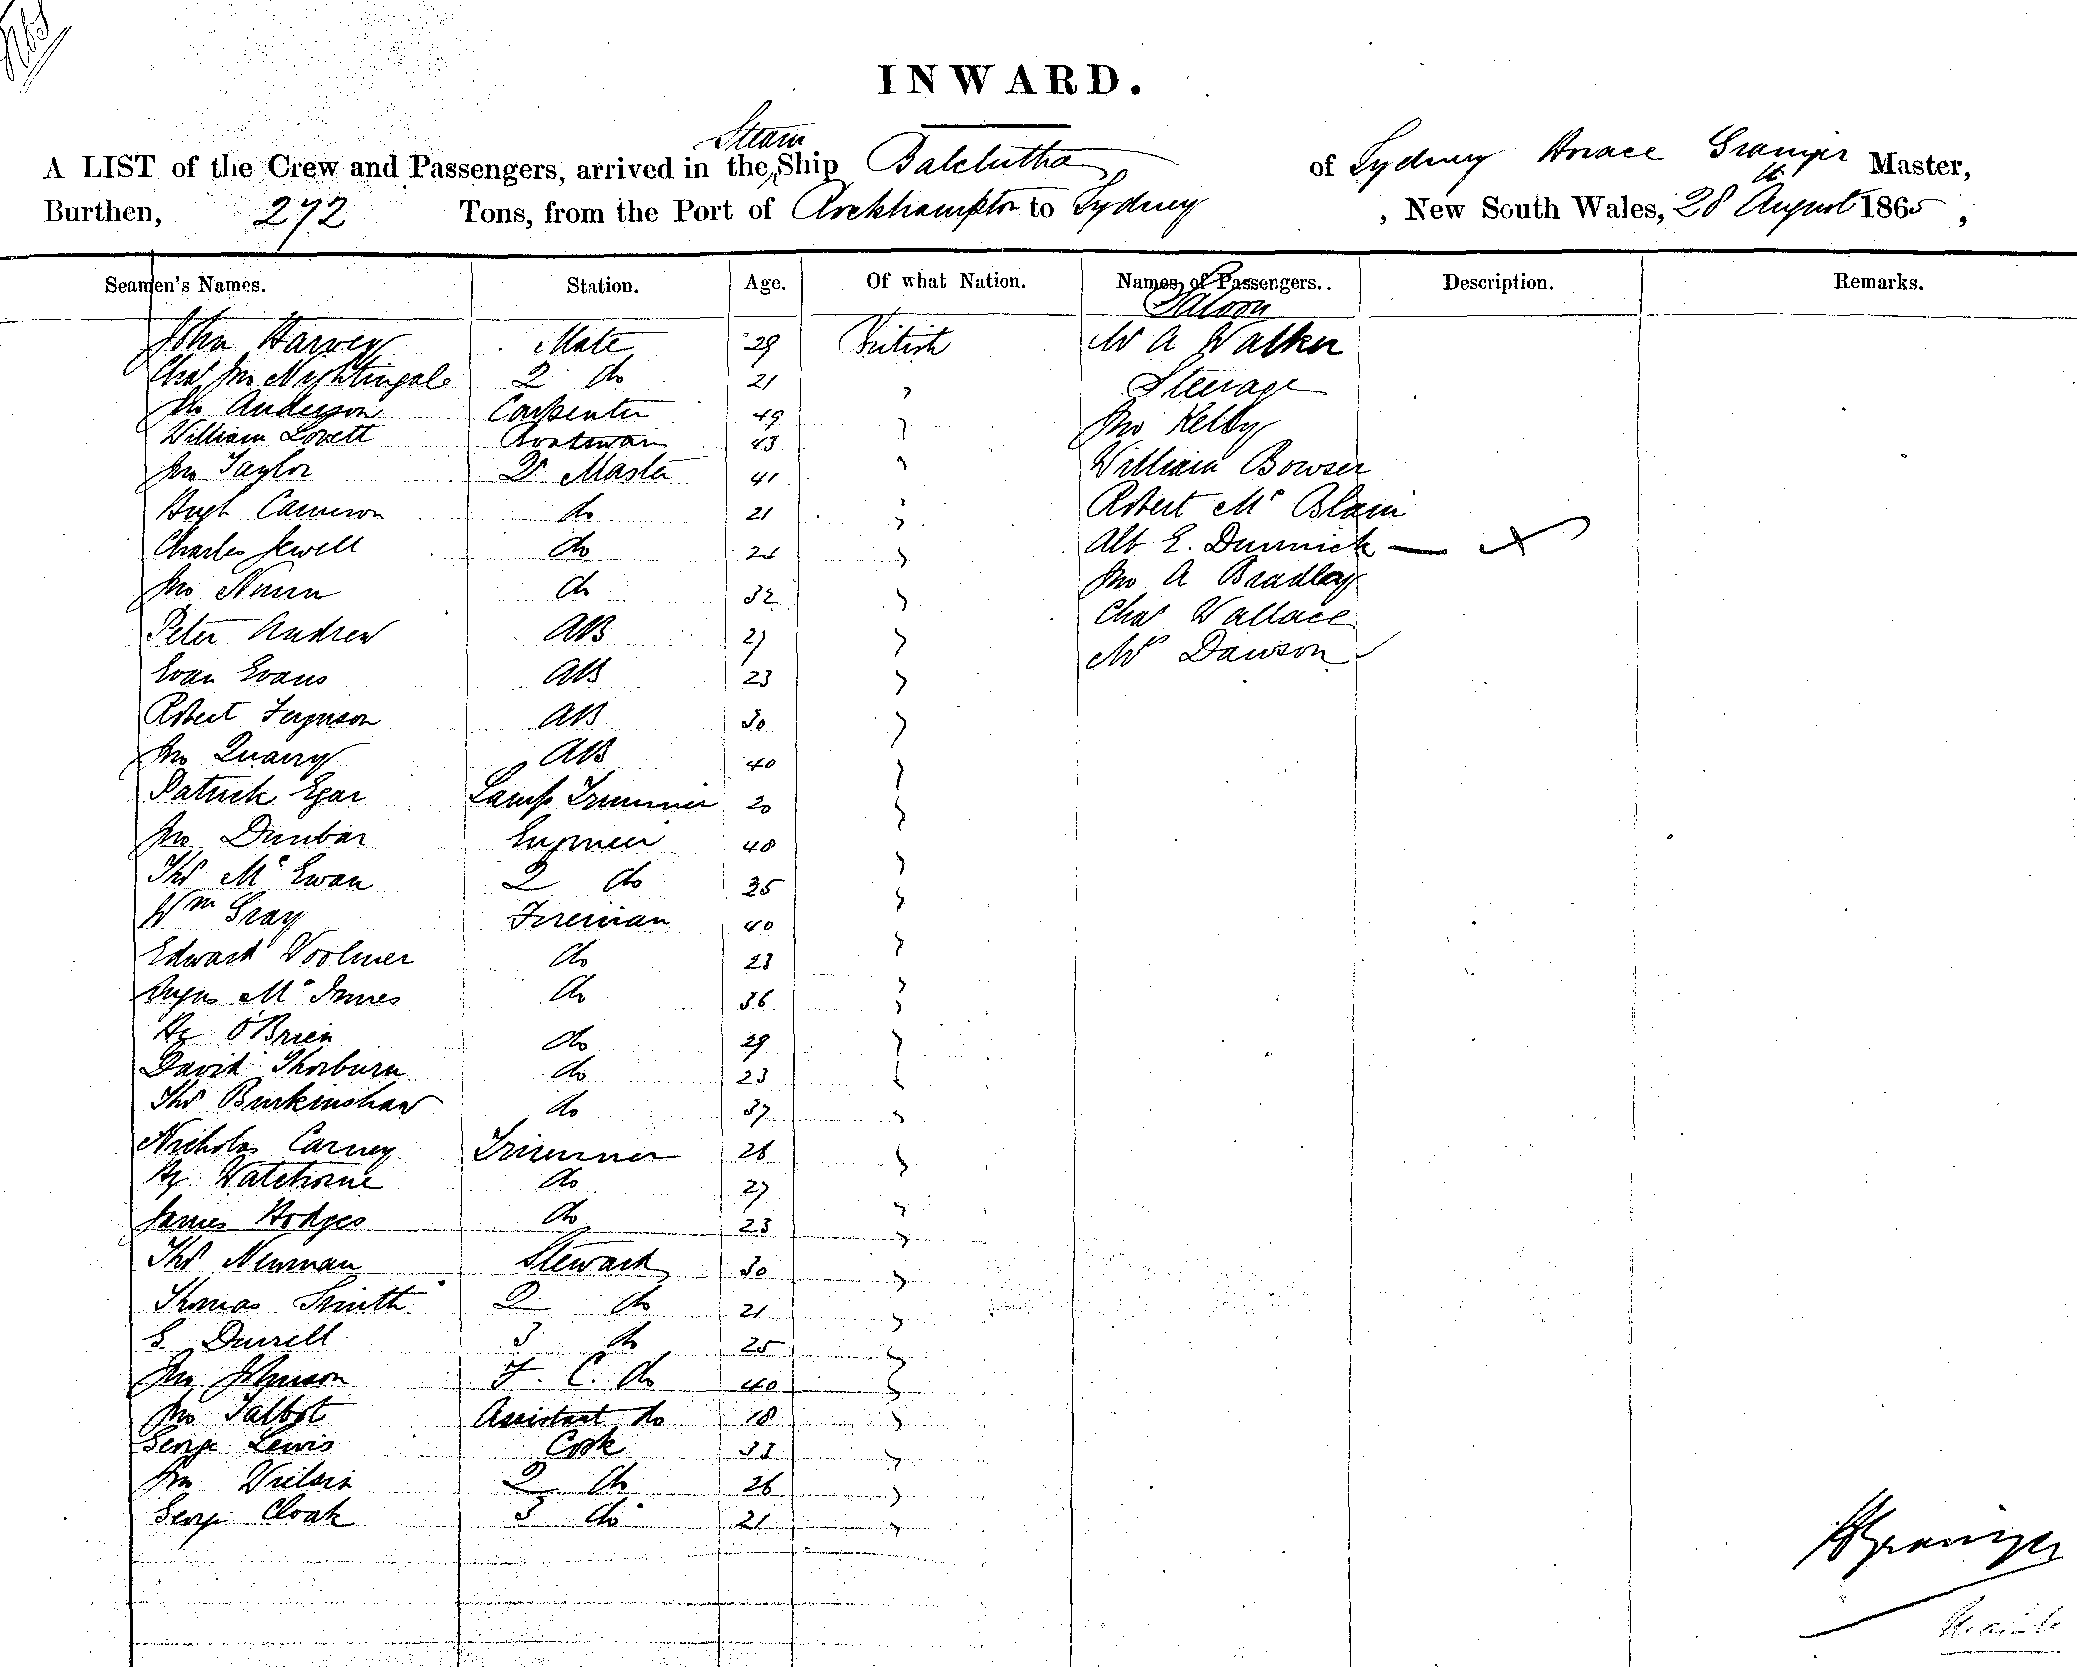 INWARD.
A LIST of the Crew and Passengers, arrived in the Steam Ship Balclutha of Sydney Horace Grainger Master,
Burthen, 272 Tons, from the Port of Rockhampton to Sydney, New South Wales, 28th August 1865,
Seamen's Names. Station. Age. Of what Nation. Names of Passengers. Description. Remarks.
Saloon
John Harvey Mate 29 British Mr A Walker
Chas Jno Nightingale 2 do 21 " Steerage
Jno Anderson Carpenter 49 " Jno Kelly
William Lovett Boatswain 43 "
Jno Taylor Qr Master 41 " William Bowser
Hugh Cameron do 21 " Robert Mc Blain
Charles Jewell do " Alb E. Dunnick — X
Jno Nunn do 32 " Jno A Bradley
Peter Andrew AB 27 " Chas Wallace
Evan Evans AB 23 " Mr Dawson
Robert Ferguson AB 30 "
Jno Quarry AB 40 "
Patrick Egar Lamp Trimmer 20 "
Jno Dunbar Engineer 40 "
Thos Mc Ewan 2 do 35 "
Wm Gray Fireman 40 "
Edward Woolmer do 23 "
Angus Mc Innes do 36 "
Hy O'Brien do 29 "
David Thorburn do 23 "
Thos Burkinshaw do 37 "
Nicholas Carney Trimmer 26 "
Hy Watchorne do 27 "
James Hodges do 23 "
Thos Newman Steward 30 "
Thomas Smith 2 do 21 "
E. Durrell 3 do 25 "
Jno Johnson F. C. do 40 "
Jno Talbot Assistant do 18 "
George Lewis Cook 33 "
Jno Wilson 2 do 26 "
George Cloak 3 do 21 "
H Grainger